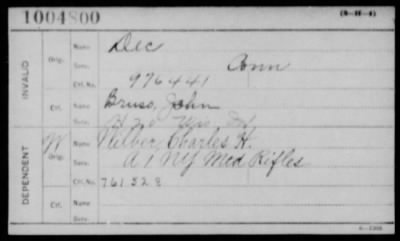 1004800
(3-H-4)
INVALID
Orig.
Name Dec
Serv. Conn
Ctf. No. 976441
Ctf.
Name Bruso, John
Serv. H 20 Wis
DEPENDENT
W
Orig.
Name Wilber, Charles H.
Serv. A 1 NY Mtd Rifles
Ctf. No. 761528
Ctf.
Name
Serv.